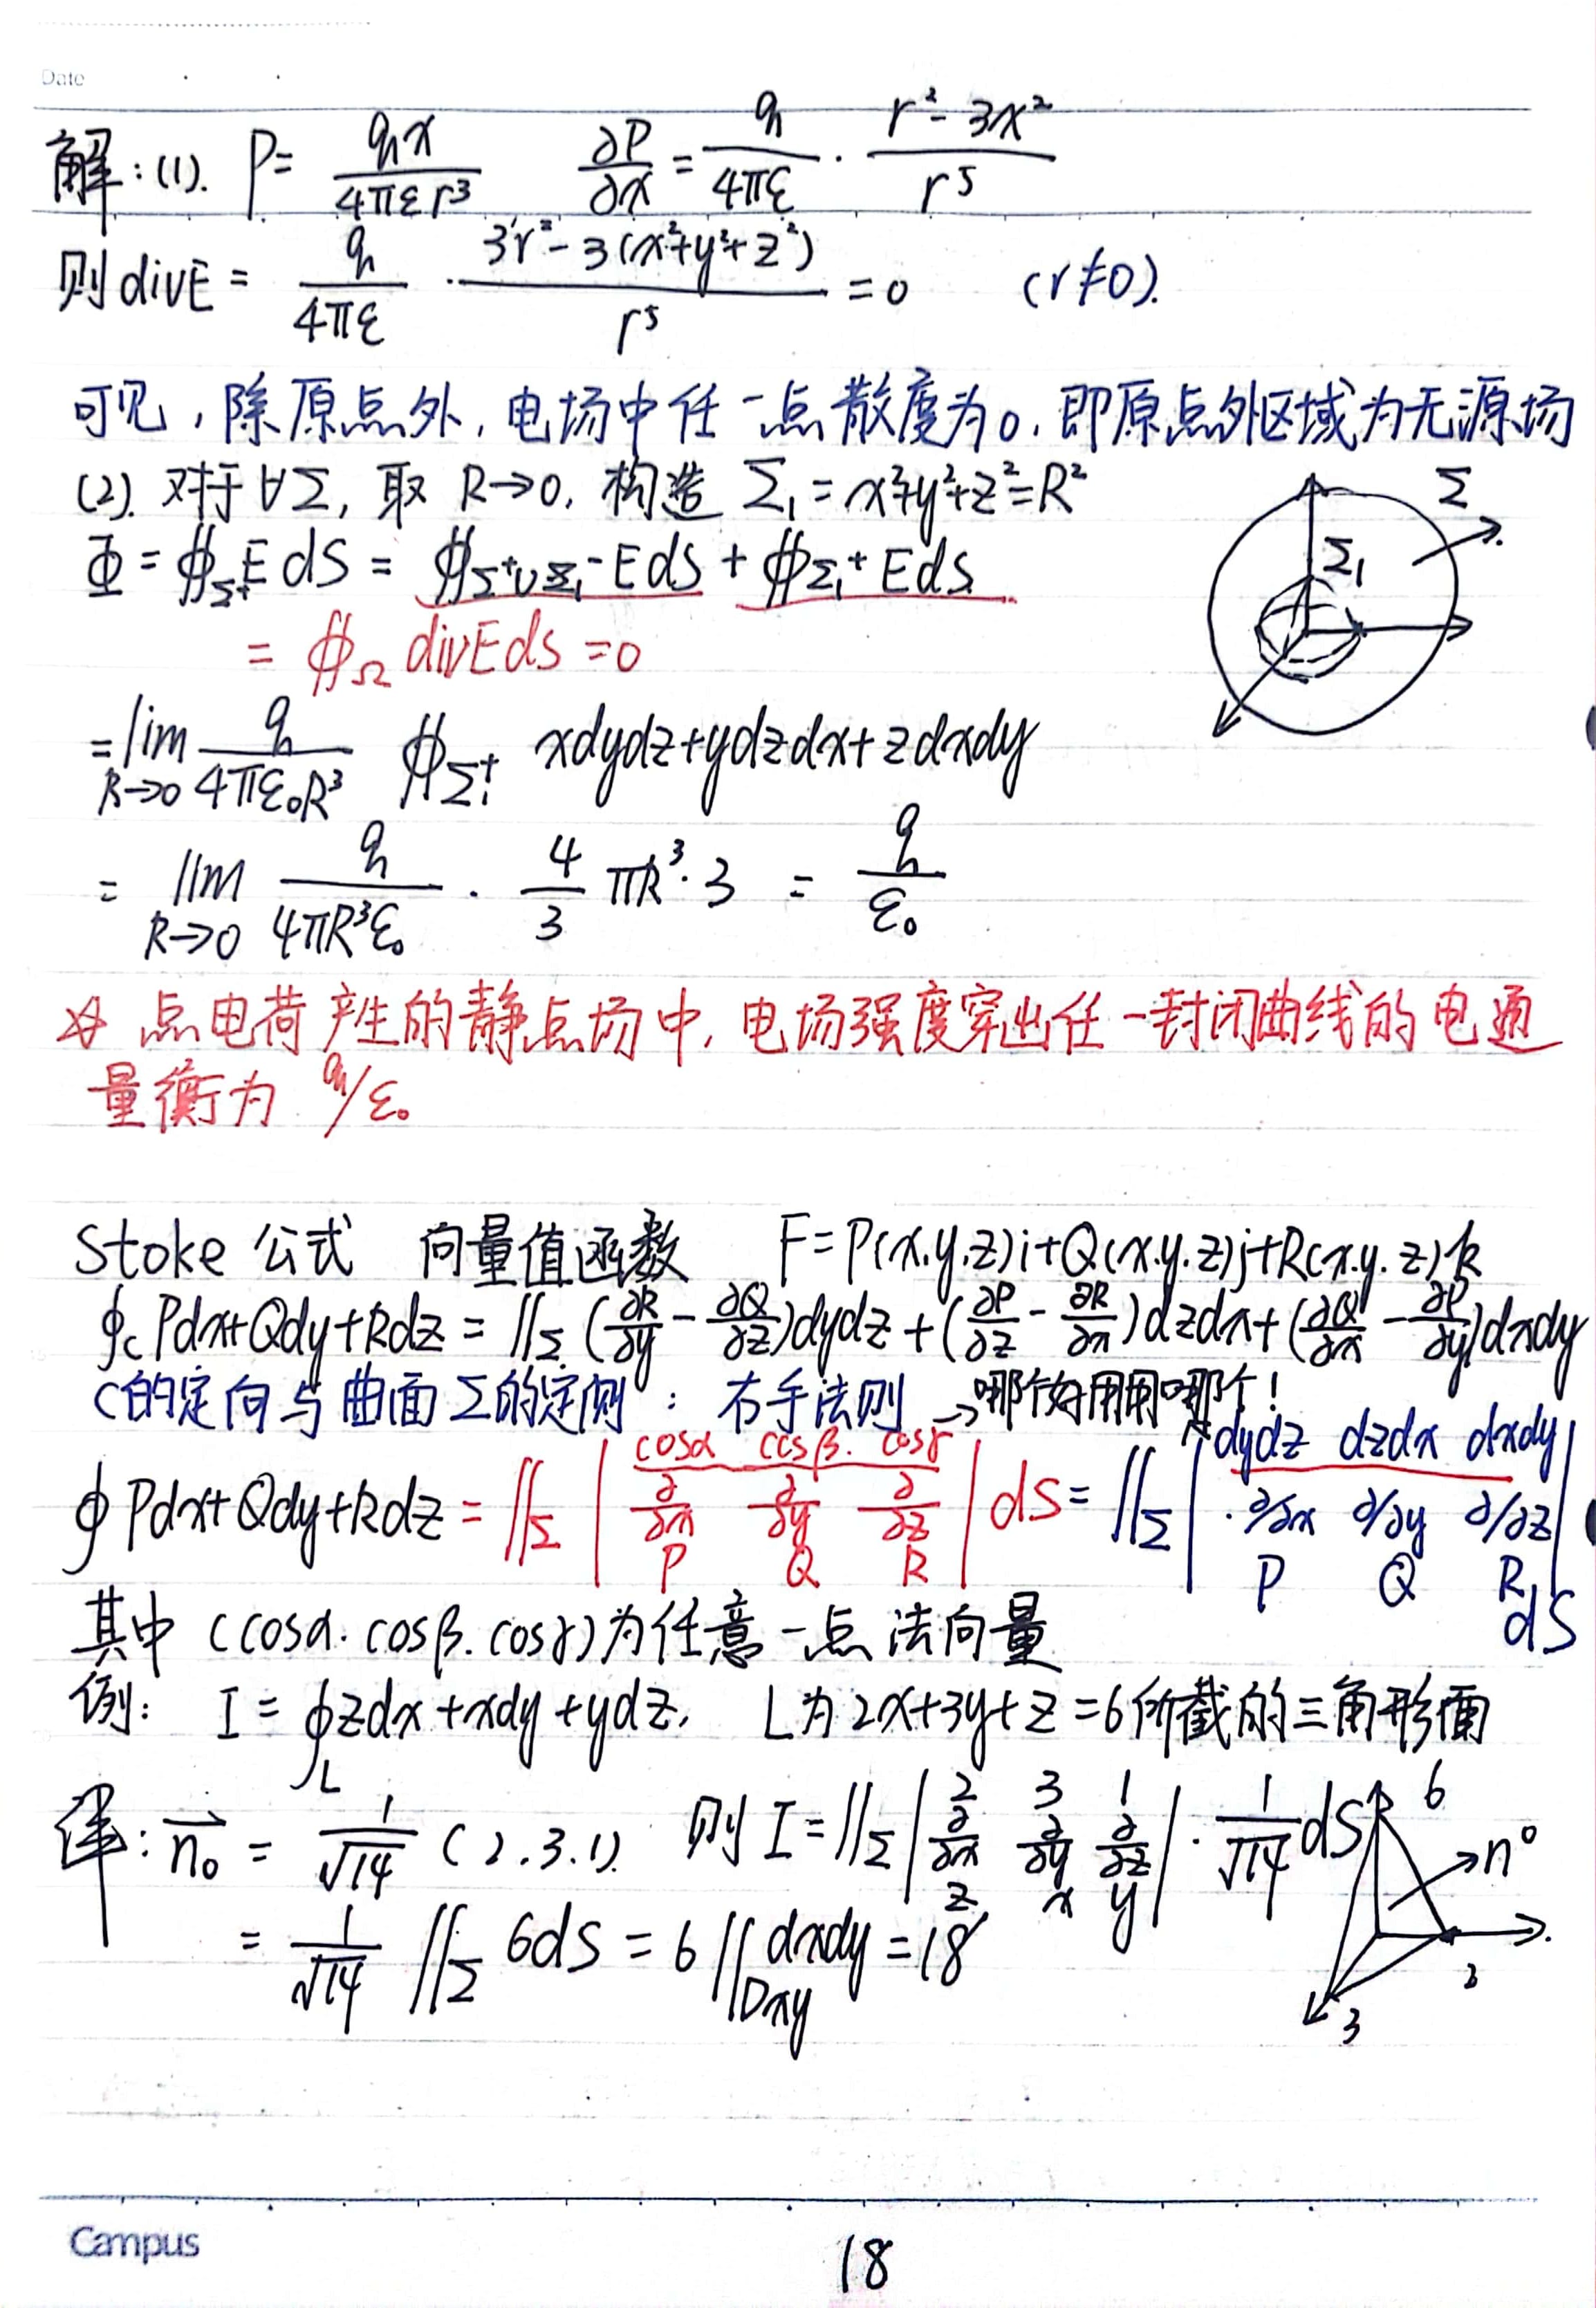 Date
解:(1). P= qx/4πεr³ ∂P/∂x = q/4πε · r²-3x²/r⁵
则divE = q/4πε · 3r²-3(x²+y²+z²)/r⁵ =0 (r≠0).
可见,除原点外,电场中任一点散度为0.即原点外区域为无源场
(2). 对于∀Σ, 取 R→0, 构造 Σ₁=x²+y²+z²=R²
Φ = ∯Σ⁺ E dS = ∯Σ⁺∪Σ₁⁻ EdS + ∯Σ₁⁺ EdS
= ∯Ω divEds =0
=lim R→0 q/4πε₀R³ ∯Σ₁⁺ xdydz+ydzdx+zdxdy
= lim R→0 q/4πR³ε₀ · 4/3 πR³·3 = q/ε₀
Σ
Σ₁
※ 点电荷产生的静点场中,电场强度穿出任一封闭曲线的电通
量衡为 q/ε₀
Stoke 公式 向量值函数 F=P(x.y.z)i+Q(x.y.z)j+R(x.y.z)k
∮c Pdx+Qdy+Rdz = ∬Σ (∂R/∂y - ∂Q/∂z)dydz+(∂P/∂z - ∂R/∂x)dzdx+(∂Q/∂x - ∂P/∂y)dxdy
C的定向与曲面Σ的定侧 : 右手法则 →哪个好用用哪个!
∮ Pdx+Qdy+Rdz = ∬Σ | cosα cosβ. cosγ ∂/∂x ∂/∂y ∂/∂z P Q R | dS = ∬Σ | dydz dzdx dxdy ∂/∂x ∂/∂y ∂/∂z P Q R | dS
其中 (cosα. cosβ. cosγ)为任意一点法向量
例: I = ∮L zdx+xdy+ydz, L为2x+3y+z=6所截的三角形面
解: n₀ = 1/√14 (2.3.1). 则 I=∬Σ | 2 3 1 ∂/∂x ∂/∂y ∂/∂z z x y | · 1/√14 dS
= 1/√14 ∬Σ 6dS = 6∬Dxy dxdy =18
6
n⁰
2
3
Campus
18